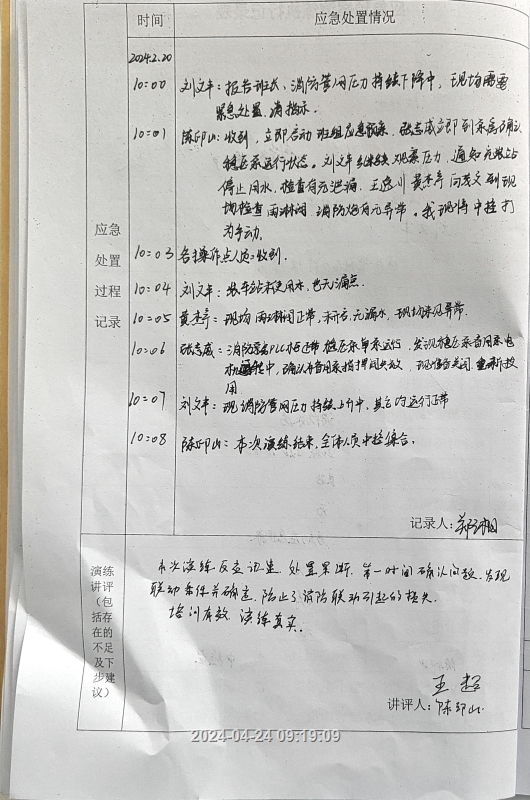 时间 应急处置情况
2024.2.20
10:00 刘文丰：报告班长、消防管网压力持续下降中，现场需要
紧急处置，请指示.
10:01 陈印山：收到，立即启动班组应急预案，张志成立即到泵房确认
稳压泵运行状态。刘文丰继续观察压力，通知
停止用水，检查有无泄漏. 到现
场检查雨淋阀 消防炮有无异常。我现将中控打
为手动.
应急
处置
过程
记录
10:03 各操作点人员：收到.
10:04 刘文丰：装车站未使用水，也无漏点.
10:05 黄杰亭：现场雨淋阀正常，未动告，无漏水，现场未见异常.
10:06 张志成：消防泵房PLC柜正常 稳压泵单泵运行 发现稳压泵备用泵电
机 中，确认为备用泵 阀失效 现 关闭. 重新投
用
10:07 刘文丰：现消防管网压力持续上升中，其它均运行正常
10:08 陈印山：本次演练结束，全体人员中控综合.
记录人：
演练
讲评
（包
括存
在的
不足
及下
步建
议）
本次演练反应迅速. 处置果断. 第一时间确认问题. 发现
联动条件并确定. 防止了消防联动引起的损失.
培训有效 演练真实.
王超
讲评人：陈印山
2024-04-24 09:19:09